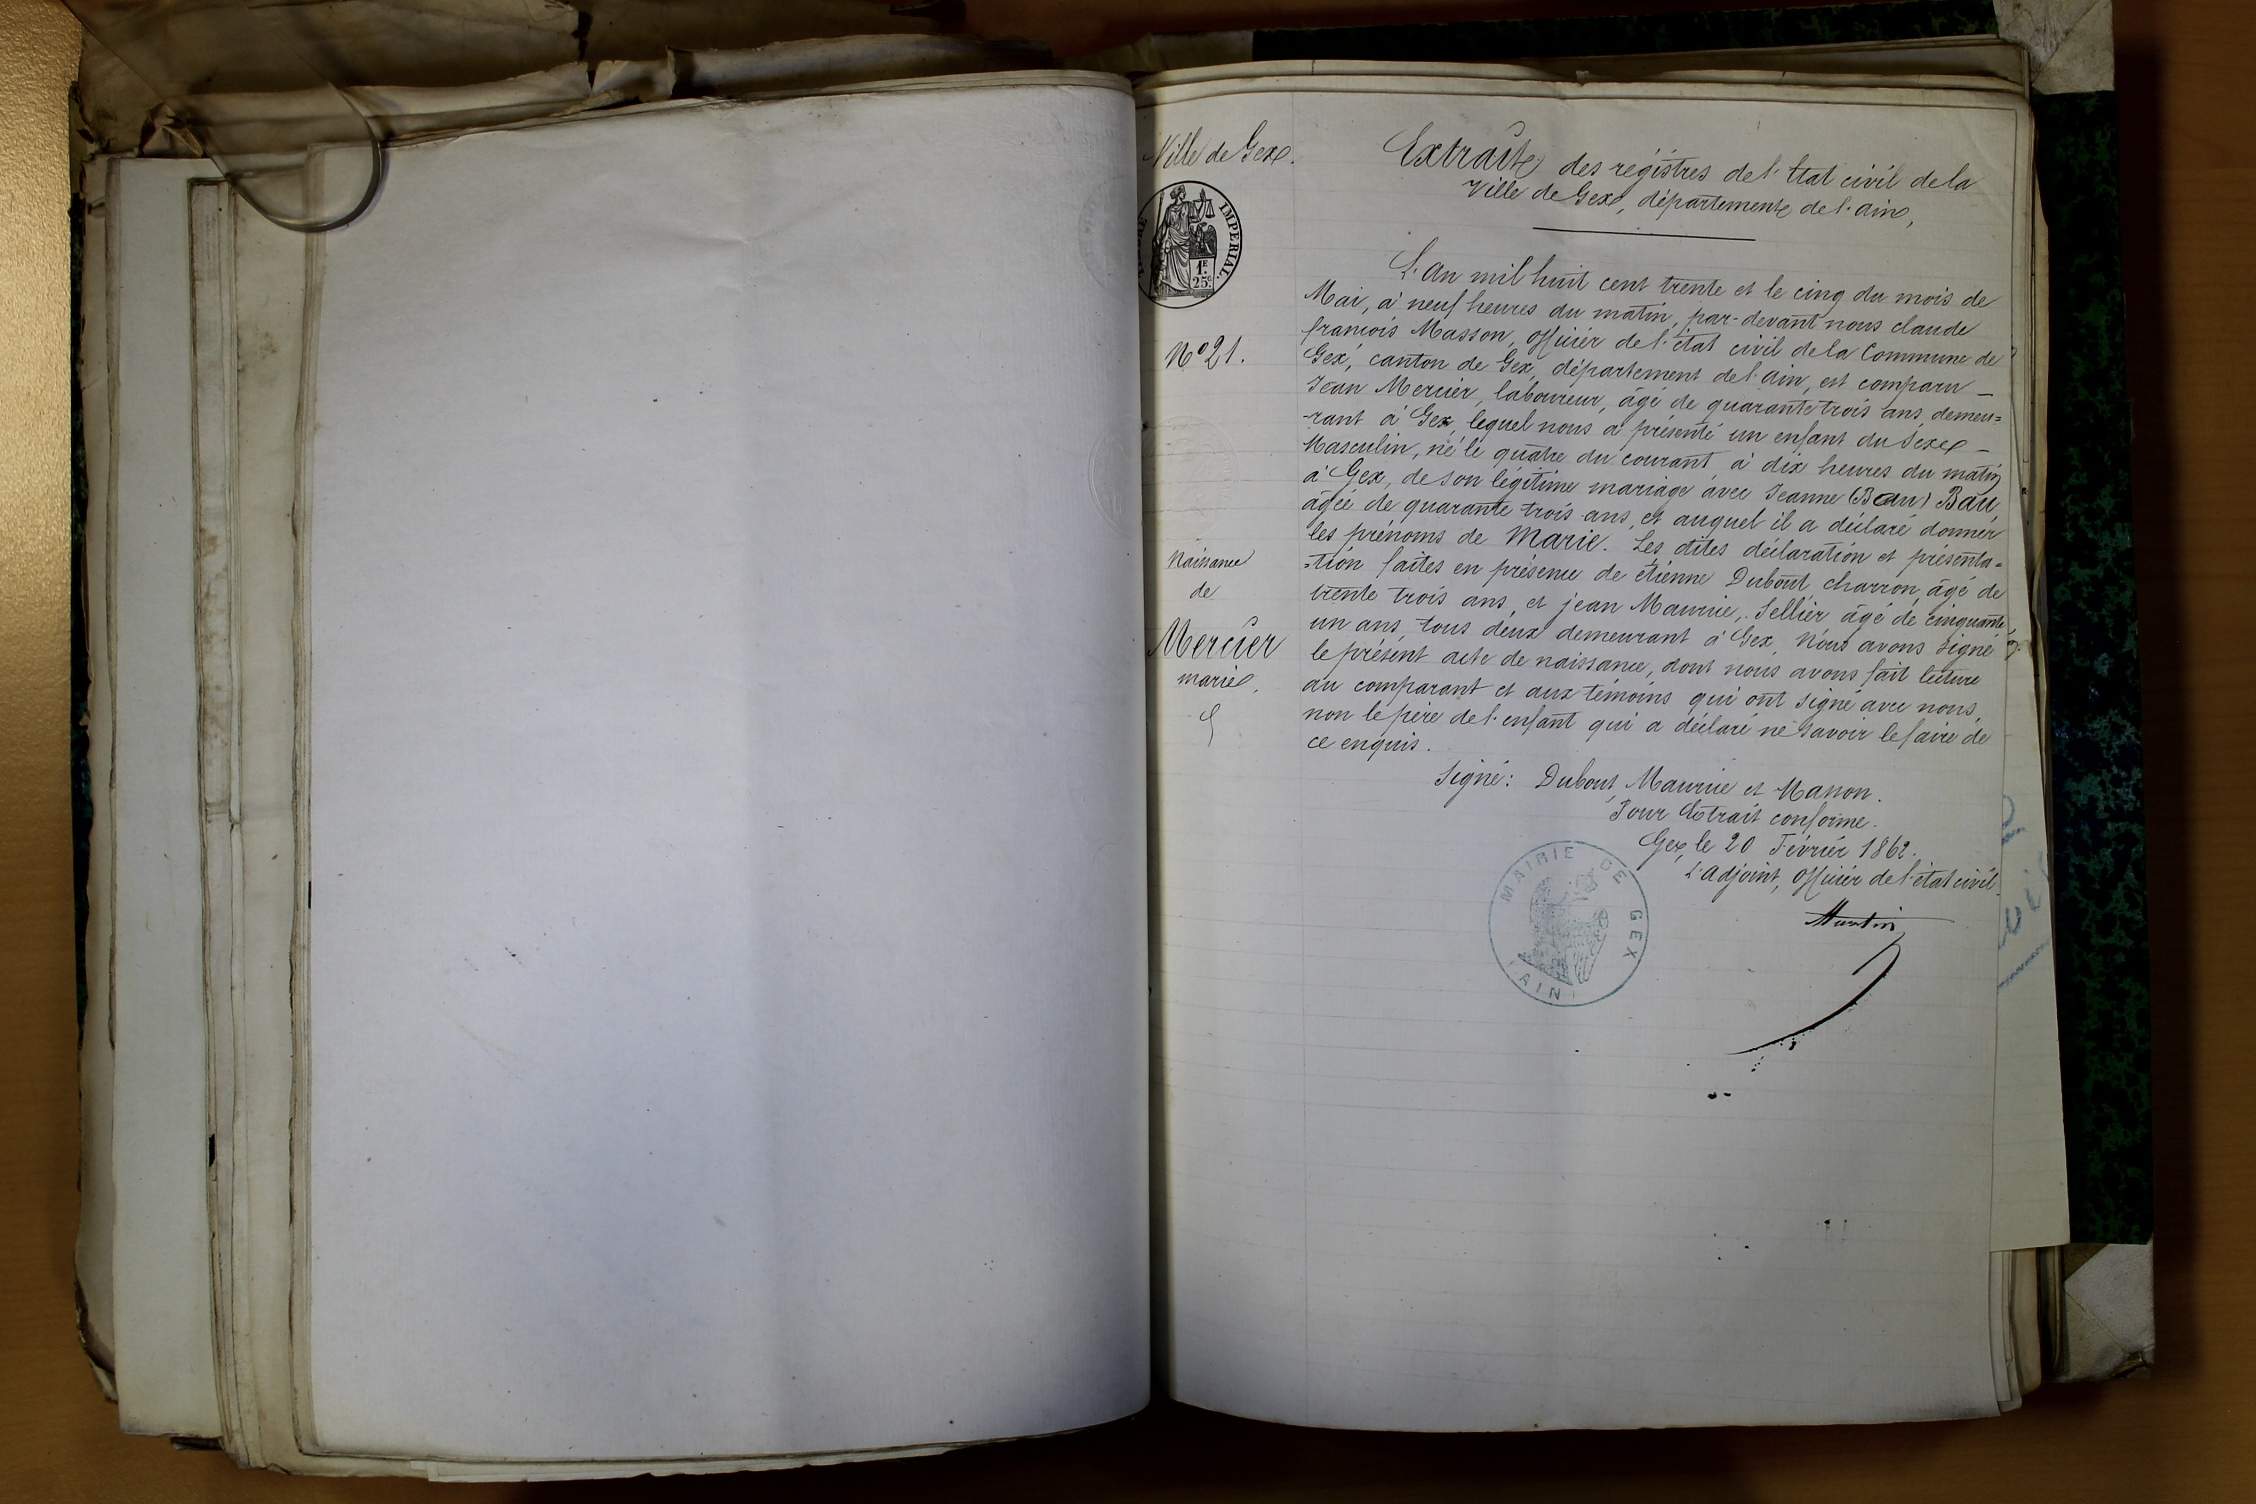 Ville de Gex.
IMPERIAL.
1F
25c
N° 21.
Naissance
de
Mercier
marie.
Extrait des régistres de l'État civil de la
Ville de Gex, département de l'ain,
L'an mil huit cent trente et le cinq du mois de
Mai, à neuf heures du matin, par-devant nous claude
françois Masson, officier de l'état civil de la Commune de
Gex, canton de Gex, département de l'ain, est comparu —
Jean Mercier, laboureur, âgé de quarante trois ans, demeu=
-rant à Gex, lequel nous a présenté un enfant du Sexe —
Masculin, né le quatre du courant à dix heures du matin
à Gex, de son légitime mariage avec Jeanne (Bau) Bau
âgée de quarante trois ans, et auquel il a déclaré donner
les prénoms de Marie. Les dites déclaration et présenta=
=tion faites en présence de étienne Dubout, charron, âgé de
trente trois ans, et jean Maurie, Sellier âgé de cinquante
un ans, tous deux demeurant à Gex, Nous avons signé
le présent acte de naissance, dont nous avons fait lecture
au comparant et aux témoins qui ont signé avec nous,
non le père de l'enfant qui a déclaré ne savoir le faire de
ce enquis.
Signé: Dubout, Maurie et Masson.
Pour Extrait conforme.
Gex, le 20 Février 1862.
L'adjoint, officier de l'état civil.
MAIRIE DE GEX
(AIN)